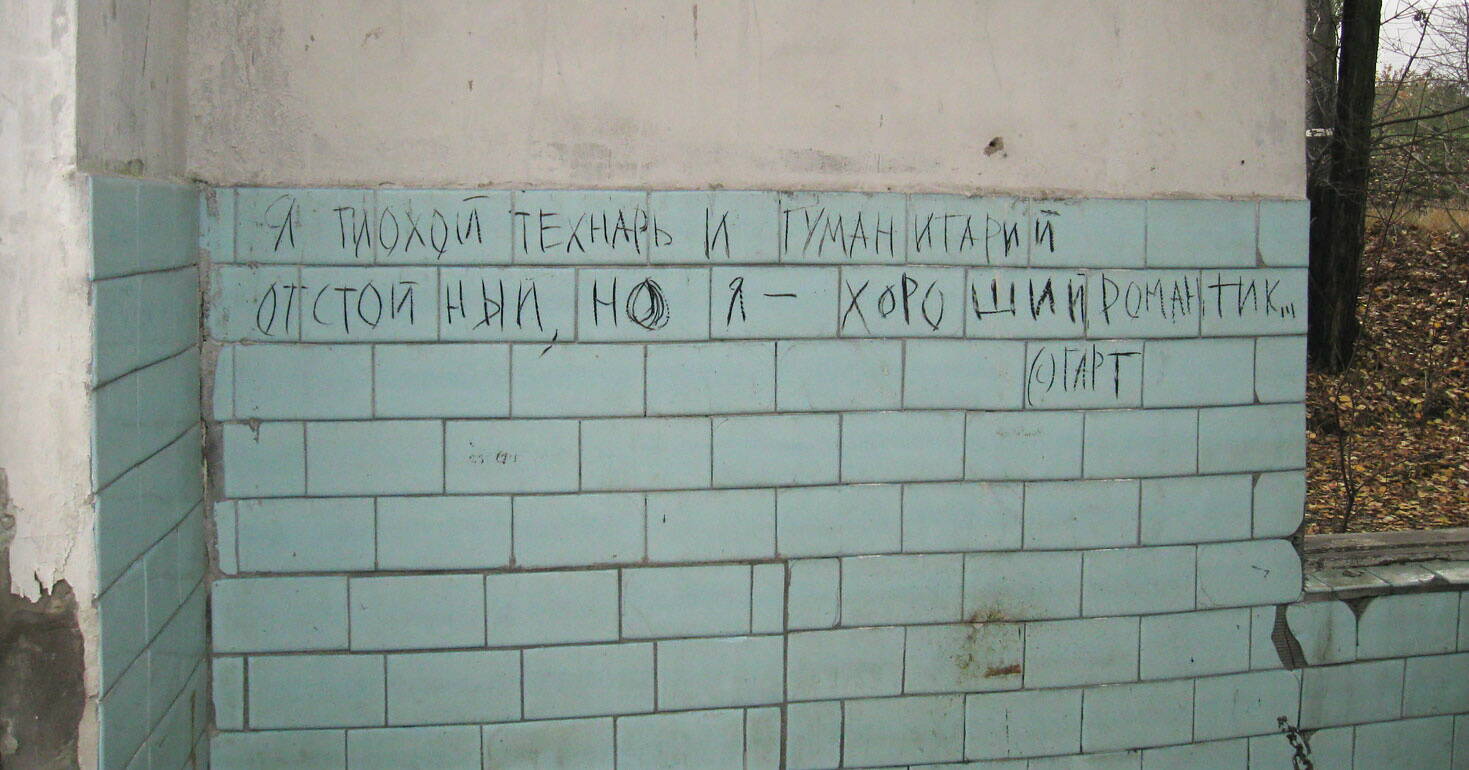 Я ПЛОХОЙ ТЕХНАРЬ И ГУМАНИТАРИЙ
ОТСТОЙНЫЙ, НО Я — ХОРОШИЙ РОМАНТИК...
(С) ГАРТ